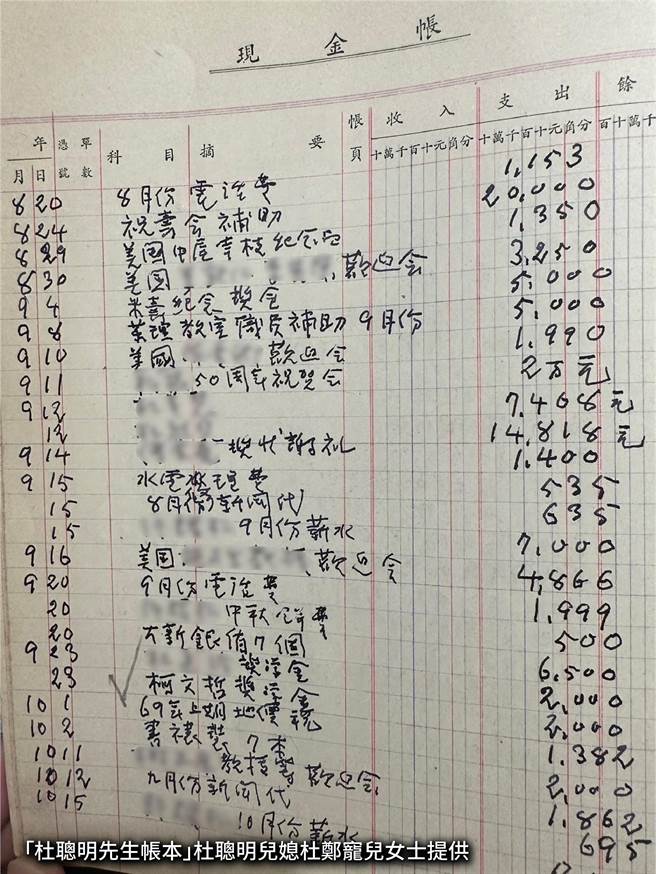 現金帳
年 憑單 科目 摘要 帳 收入 支出 餘
月 日 號數 頁 十萬千百十元角分 十萬千百十元角分 百十萬千
8 20 8月份電話費 1,153
8 24 祝壽会補助 20,000
8 29 美国中屋幸枝紀念品 1,350
8 30 美国 歡迎会 3,250
9 4 米壽紀念獎金 5,000
9 8 藥理教室職員補助 9月份 5,000
9 10 美國 歡迎会 1,990
9 11 50周年祝賀会 2万元
9 12 7,408元
12
9 14 獎状謝礼 14,818元
9 15 水電修理費 1,400
15 8月份新聞代 535
15 9月份薪水 635
9 16 美国 歡迎会 7,000
9 20 9月份電話費 4,866
20 中秋餅費 1,999
20 大新銀值7個 500
9 23 獎学金 6,500
23 柯文哲獎学金 2,000
10 1 69年上期地價稅 2,000
10 2 書裱裝 7本 1,382
10 11 教授等歡迎会 2,000
10 12 九月份新聞代 1,862
10 15 10月份薪水 695
「杜聰明先生帳本」杜聰明兒媳杜鄭寵兒女士提供